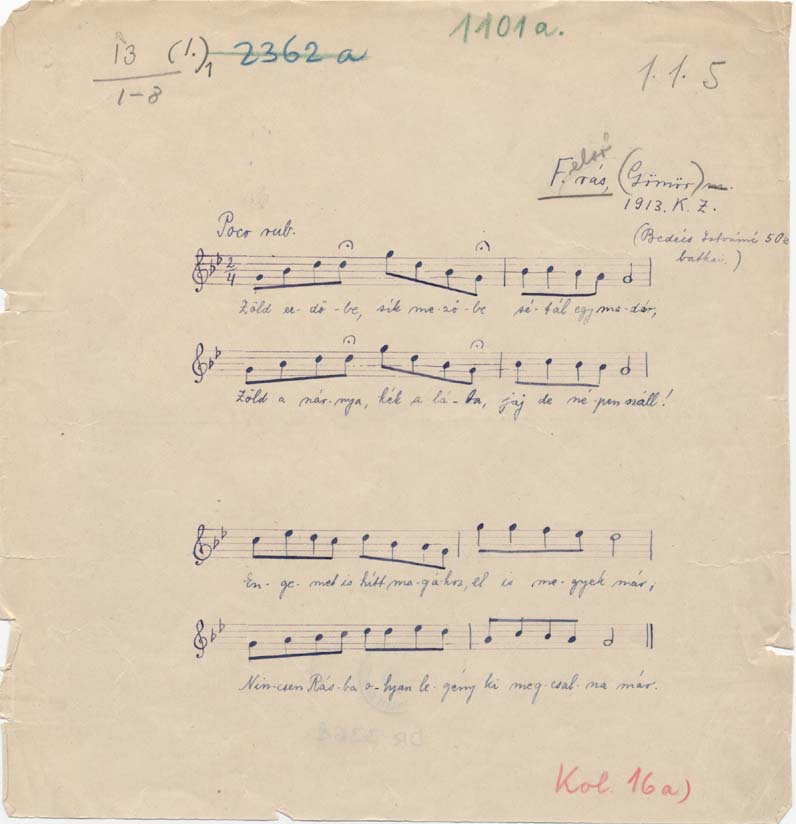 1101a.
13 (1.)1 2362 a
1-8
1. 1. 5
Felső
F. rás, (Gömör) m.
1913. K. Z.
(Bedécs Istvánné 50é
Poco rub.
2/4
Zöld er-dő-be, sík me-ző-be sé-tál egy ma-dár,
Zöld a szár-nya, kék a lá-ba, jaj de szé-pen száll!
En-ge-met is hítt ma-gához, el is me-gyek már;
Nin-csen Rás-ba o-lyan le-gény ki meg-csal-na már.
Kol. 16a)